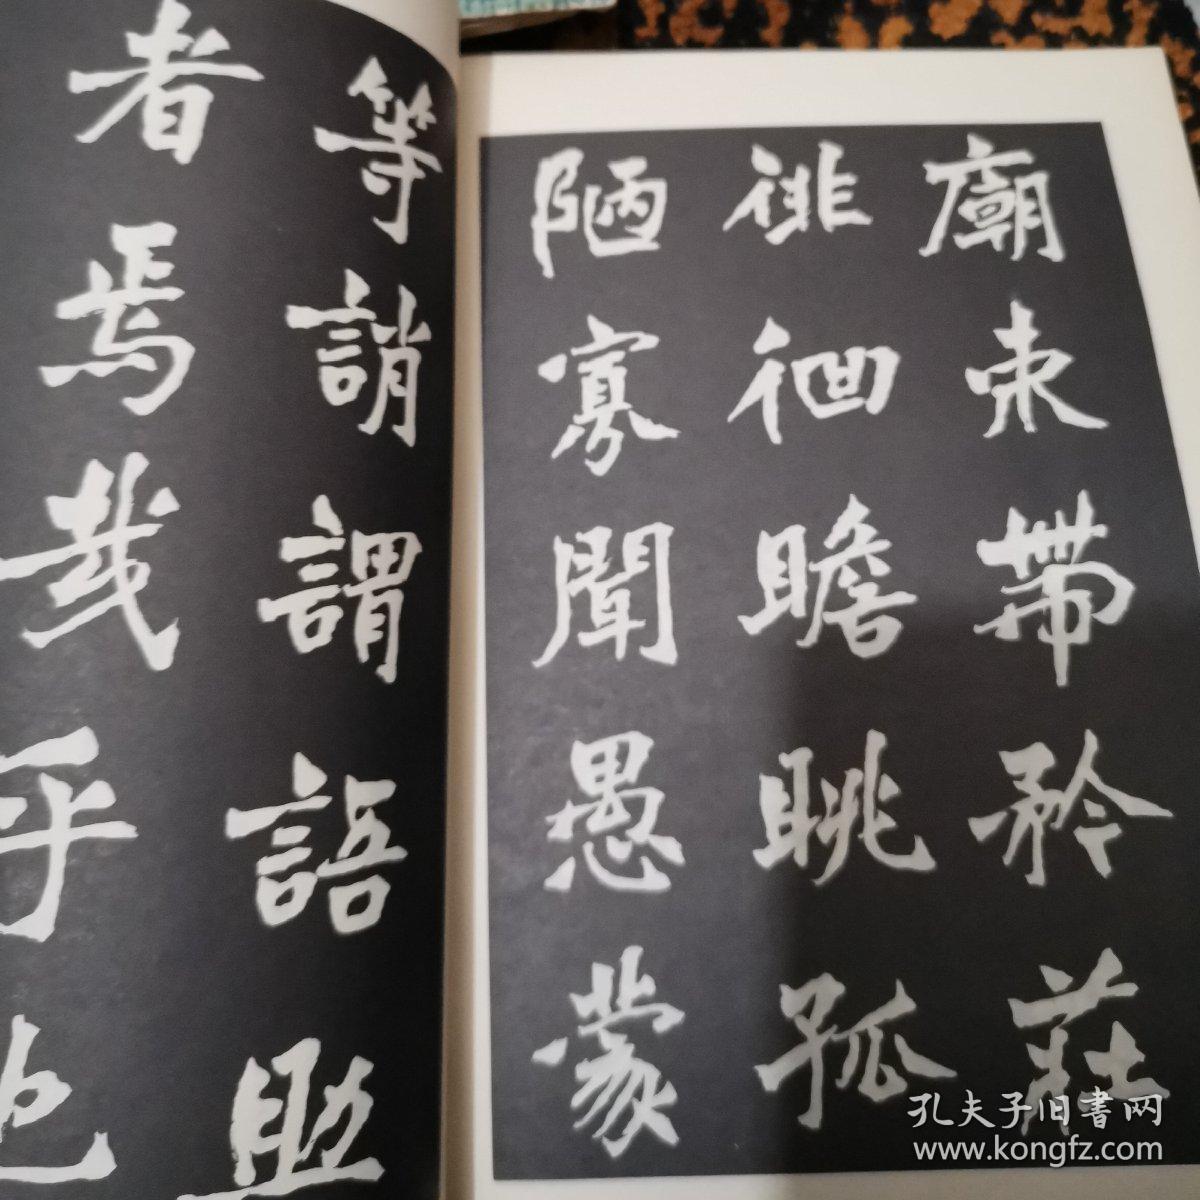 廟束帶矜莊
徘徊瞻眺孤
陋寡聞愚蒙
等誚謂語助
者焉哉乎也
孔夫子旧書网
www.kongfz.com